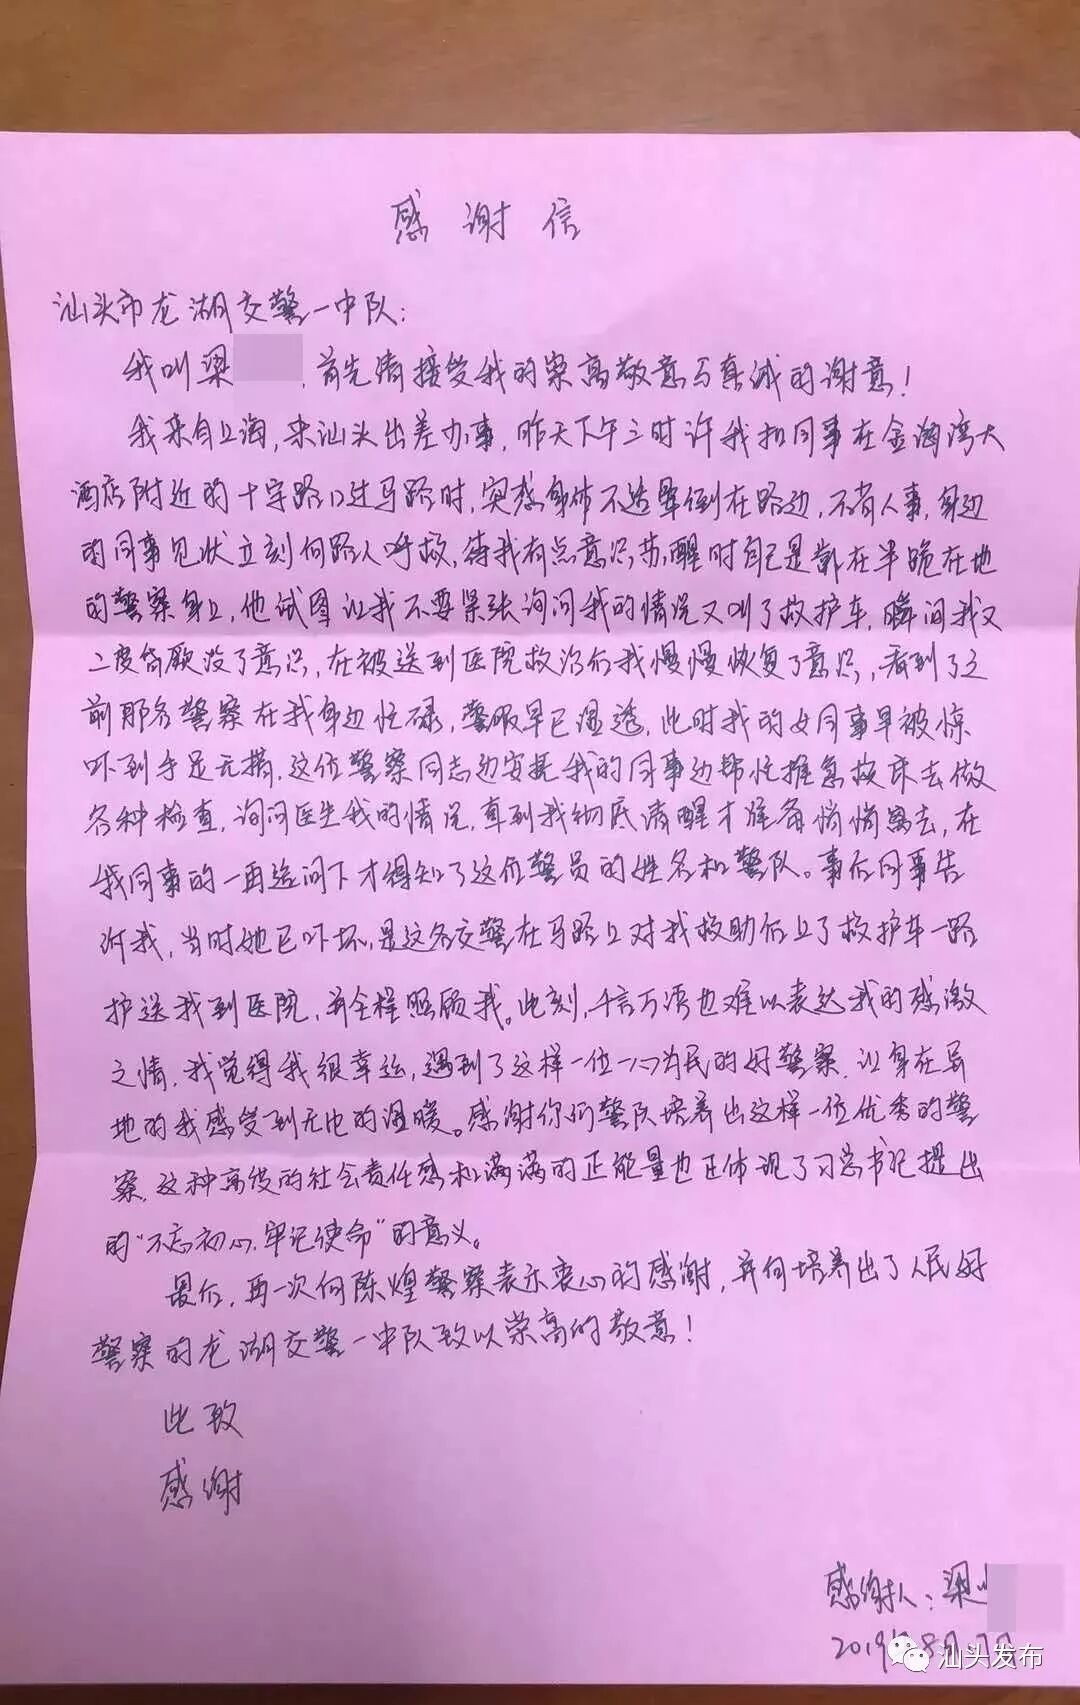 感谢信
汕头市龙湖交警一中队:
我叫梁 ,首先请接受我的崇高敬意与真诚的谢意!
我来自上海,来汕头出差办事,昨天下午三时许我和同事在金海湾大
酒店附近的十字路口过马路时,突感身体不适晕倒在路边,不省人事,身边
的同事见状立刻向路人呼救,待我有点意识苏醒时自己是靠在半跪在地
的警察身上,他试图让我不要紧张询问我的情况又叫了救护车,瞬间我又
二度昏厥没了意识,在被送到医院救治后我慢慢恢复了意识,看到了之
前那名警察在我身边忙碌,警服早已湿透,此时我的女同事早被惊
吓到手足无措,这位警察同志边安抚我的同事边帮忙推急救床去做
各种检查,询问医生我的情况,直到我彻底清醒才准备悄悄离去,在
我同事的一再追问下才得知了这位警员的姓名和警队。事后同事告
诉我,当时她已吓坏,是这名交警在马路上对我救助后上了救护车一路
护送我到医院,并全程照顾我。此刻,千言万语也难以表达我的感激
之情,我觉得我很幸运,遇到了这样一位一心为民的好警察,让身在异
地的我感受到无比的温暖。感谢你们警队培养出这样一位优秀的警
察,这种高度的社会责任感和满满的正能量也正体现了习总书记提出
的"不忘初心,牢记使命"的意义。
最后,再一次向陈煌警察表示衷心的感谢,并向培养出了人民好
警察的龙湖交警一中队致以崇高的敬意!
此致
感谢
感谢人:梁
2019年8月
汕头发布